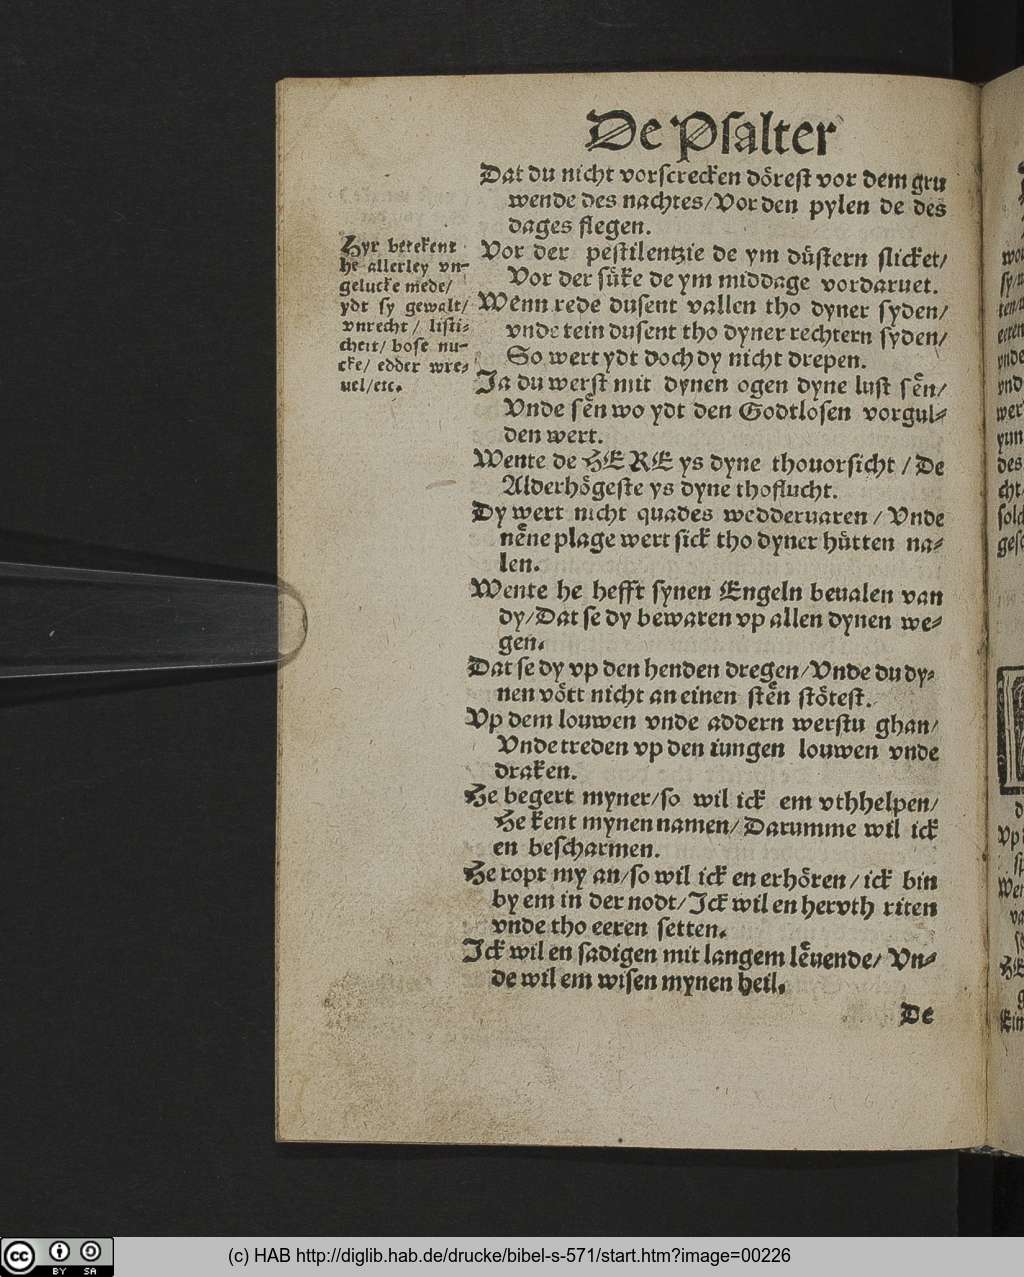 De Psalter
Dat du nicht vorscrecken dörest vor dem gru
wende des nachtes/Vor den pylen de des
dages flegen.
Vor der pestilentzie de ym düstern slicket/
Vor der süke de ym middage vordaruet.
Wenn rede dusent vallen tho dyner syden/
vnde tein dusent tho dyner rechtern syden/
So wert ydt doch dy nicht drepen.
Ja du werst mit dynen ogen dyne lust sên/
Vnde sên wo ydt den Godtlosen vorgul-
den wert.
Wente de HERE ys dyne thouorsicht / De
Alderhögeste ys dyne thoflucht.
Dy wert nicht quades wedderuaren / Vnde
nêne plage wert sick tho dyner hütten na-
len.
Wente he hefft synen Engeln beualen van
dy/Dat se dy bewaren vp allen dynen we-
gen.
Dat se dy vp den henden dregen/Vnde du dy-
nen vött nicht an einen stên stötest.
Vp dem louwen vnde addern werstu ghan/
Vnde treden vp den iungen louwen vnde
draken.
He begert myner/so wil ick em vthhelpen/
He kent mynen namen/Darumme wil ick
en bescharmen.
He ropt my an/so wil ick en erhören/ick bin
by em in der nodt/Ick wil en heruth riten
vnde tho eeren setten.
Ick wil en sadigen mit langem lêuende/ Vn-
de wil em wisen mynen heil.
De
Hyr betekent
he allerley vn-
gelucke mede/
ydt sy gewalt/
vnrecht / listi-
cheit/ bose nu-
cke/ edder wre-
uel/etc.
(c) HAB http://diglib.hab.de/drucke/bibel-s-571/start.htm?image=00226
cc BY SA